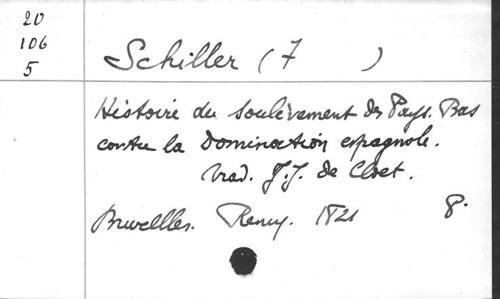 20
106
5
Schiller (F )
Histoire du soulèvement des Pays. Bas
contre la Domination espagnole.
trad. J.J. de Cloet.
Bruxelles. Remy. 1821 8.